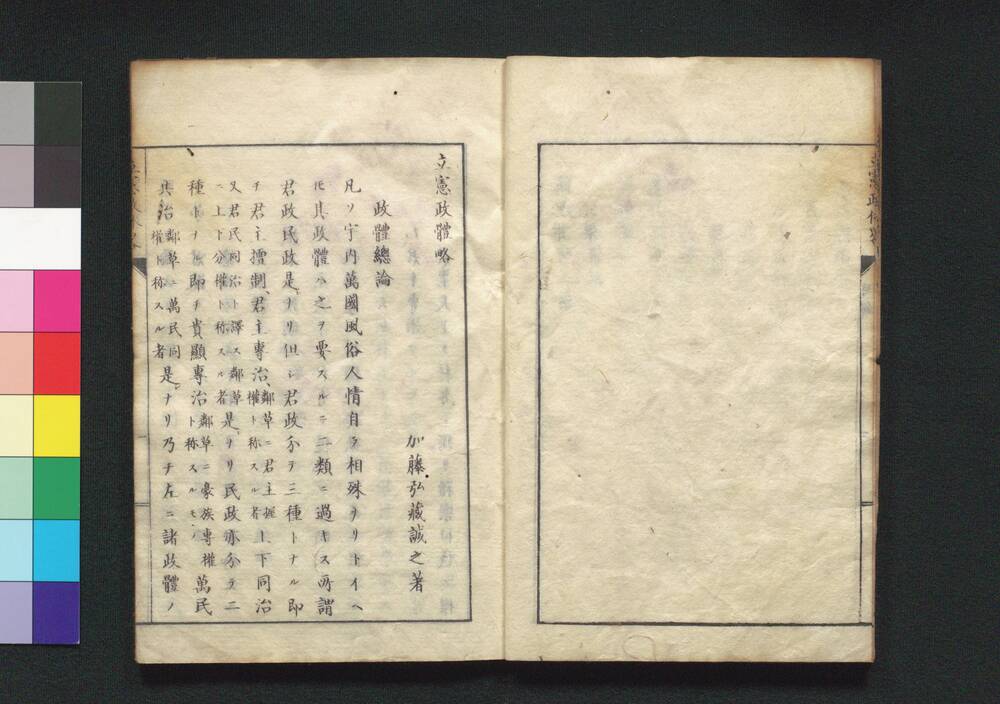 立憲政體略
加藤弘藏誠之著
政體總論
凡ソ宇内萬國風俗人情自ラ相殊ナリトイヘ
𪜈其政體ハ之ヲ要スルニ二類ニ過キス所謂
君政民政是ナリ但シ君政分テ三種トナル即
チ君主擅制、君主專治、鄰草ニ君主握權ト称スル者上下同治
又君民同治ト譯ス鄰草ニ上下分權ト称スル者是ナリ民政亦分テ二
種トナル即チ貴顯專治鄰草ニ豪族專權ト称スルモノ萬民
共治鄰草ニ萬民同權ト称スル者是ナリ乃チ左ニ諸政體ノ